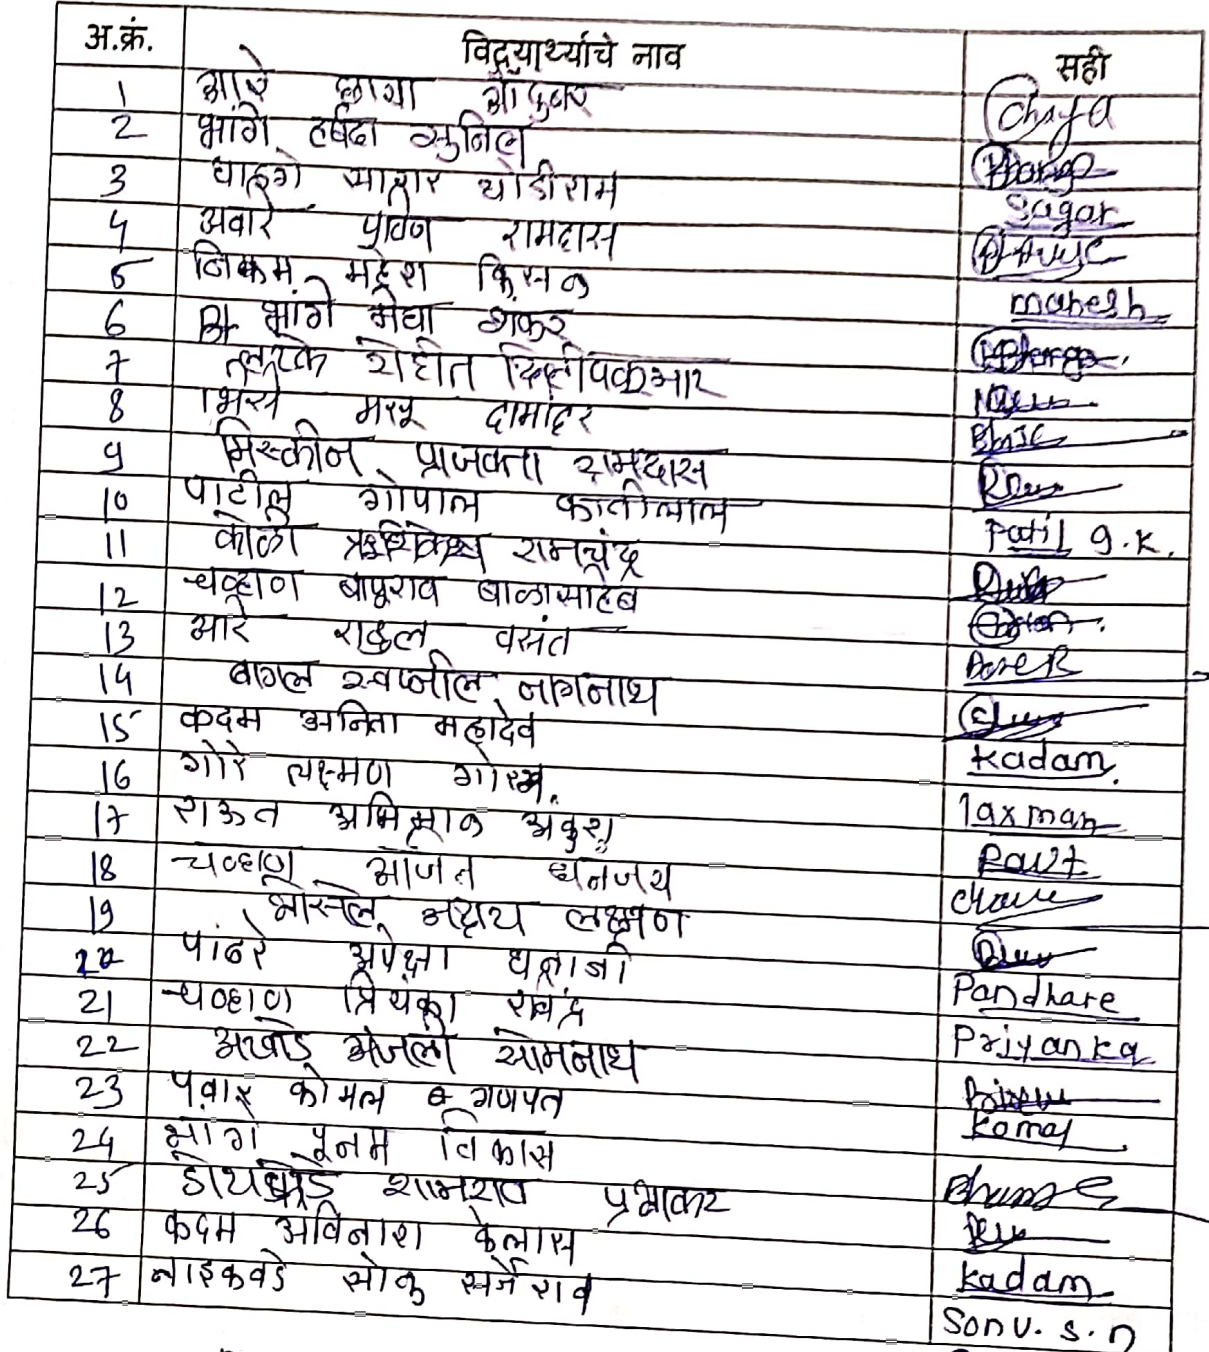 अ.क्रं. विद्यार्थ्यांचे नाव सही
1 आरे छाया औदुंबर Chaya
2 भांगे हर्षदा सुनिल Bhange
3 घाडगे सागर थोडीराम Sagar
4 अवारे प्रविण रामदास
5 निकम महेश किसन mahesh
6 भांगे मेघा शंकर Bhange
7 लटके रोहीत दिलीपकुमार
8 भिसे मयूर दामोदर Bhise
9 मिस्कीन प्राजक्ता रामदास
10 पाटील गोपाल कांतीलाल Patil g.K.
11 कोळी ऋषिकेश रामचंद्र
12 चव्हाण बापूराव बाळासाहेब
13 आरे राहुल वसंत Aare R
14 बागल स्वप्नील नागनाथ
15 कदम अनिता महादेव Kadam
16 गोरे लक्ष्मण गोरख laxman
17 राऊत अभिमान अंकुश Raut
18 चव्हाण अजित धनंजय
19 भोसले अक्षय लक्ष्मण
20 पांढरे अपेक्षा धनाजी Pandhare
21 चव्हाण प्रियंका रविंद्र Priyanka
22 अखाडे अंजली सोमनाथ
23 पवार कोमल गणपत Komal
24 भांगे पूनम विकास
25 डोयफोडे शामराव प्रभाकर
26 कदम अविनाश कैलास Kadam
27 नाइकवडे सोनु सर्जेराव Sonu. s. n